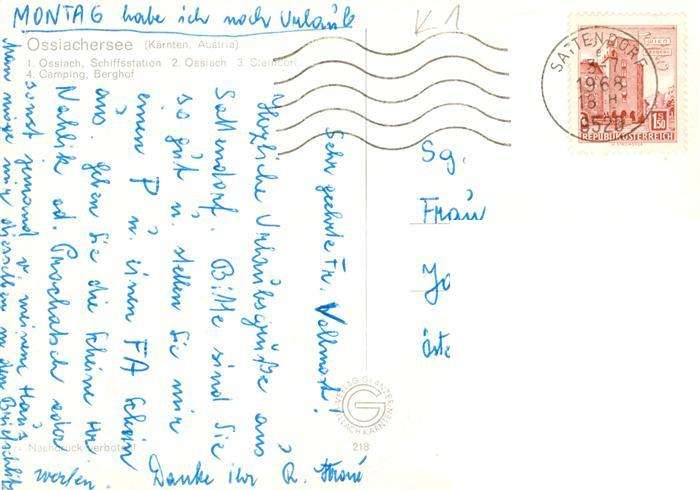 MONTAG habe ich noch Urlaub
Ossiachersee (Kärnten, Austria)
1. Ossiach, Schiffsstation 2. Ossiach 3. Steindorf
4. Camping, Berghof
Sehr geehrte Fr. Vollmost!
Herzliche Urlaubsgrüße aus
Sattendorf. Bitte sind Sie
so gut u. stellen Sie mir
einen P u. einen FA Schein
aus. geben Sie die Scheine Hr
Nahlik od. Prochatsch oder
sonst jemand v. meinem Haus
Man möge mir dieselben in den Briefschlitz
werfen. Danke ihr R.
Sg.
Frau
Jo
Öste
SATTENDORF
1968
9520
1.50
REPUBLIK ÖSTERREICH
K 1
Nachdruck verboten!
218